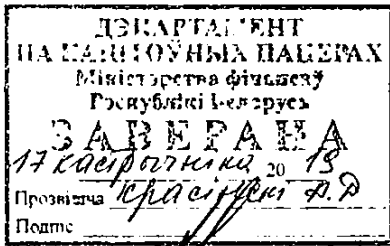 ДЭПАРТАМЕНТ
ПА КАШТОЎНЫХ ПАПЕРАХ
Міністэрства фінансаў
Рэспублікі Беларусь
ЗАВЕРАНА
17 кастрычніка 2019
Прозвішча Красінскі А.Д
Подпіс